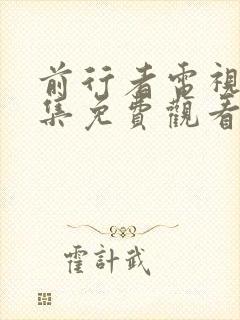 前行者電視
集免費觀看
霍計武